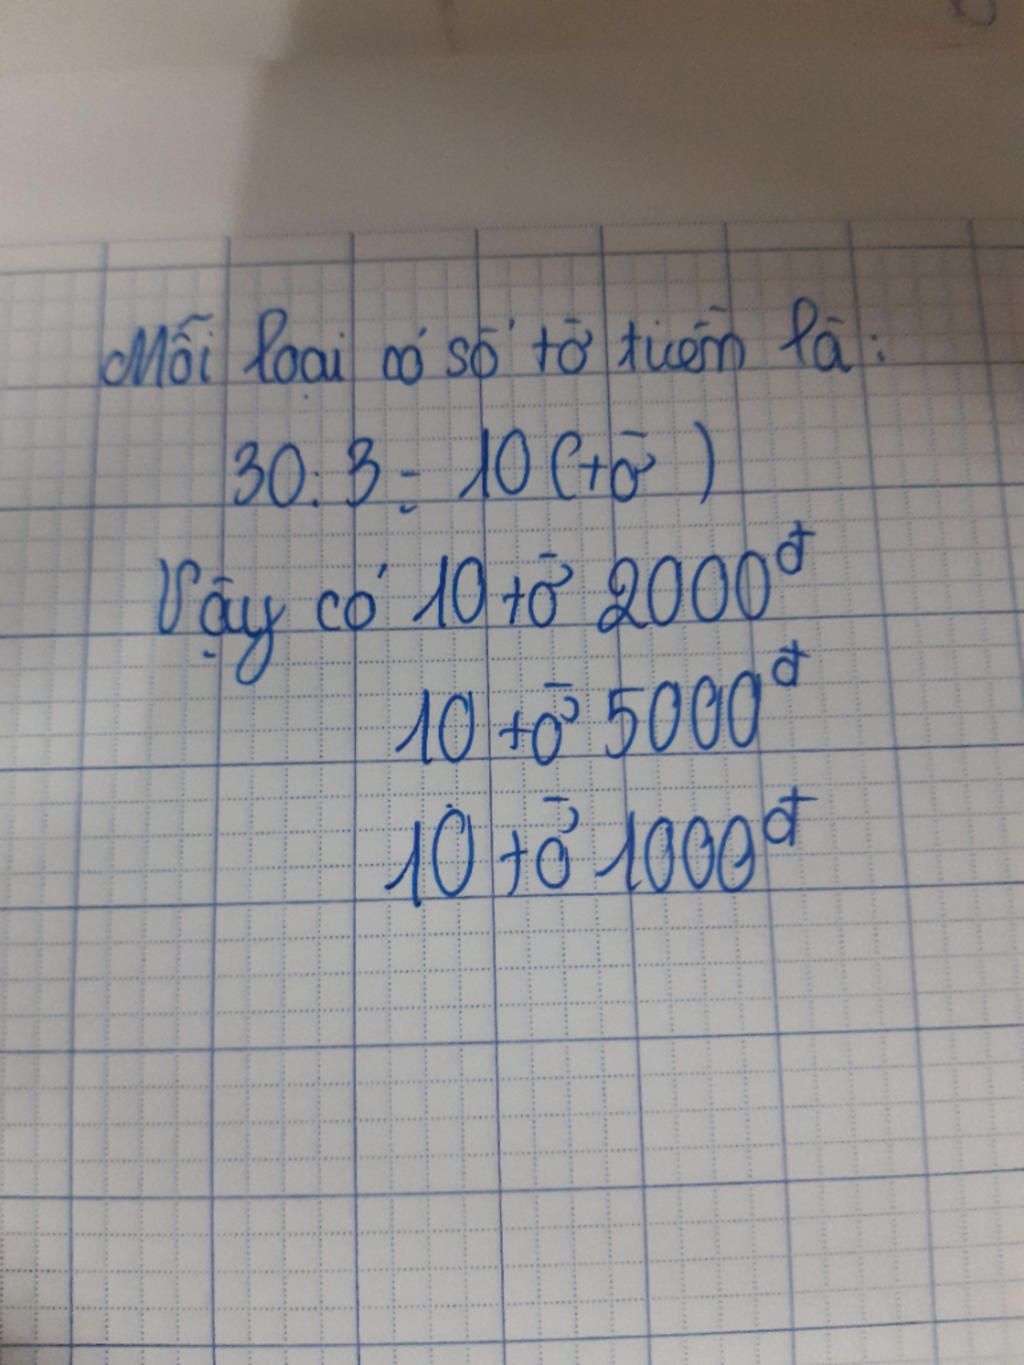 Mỗi loại có số tờ tiền là:
30:3 = 10 (tờ)
Vậy có 10 tờ 2000đ
10 tờ 5000đ
10 tờ 1000đ